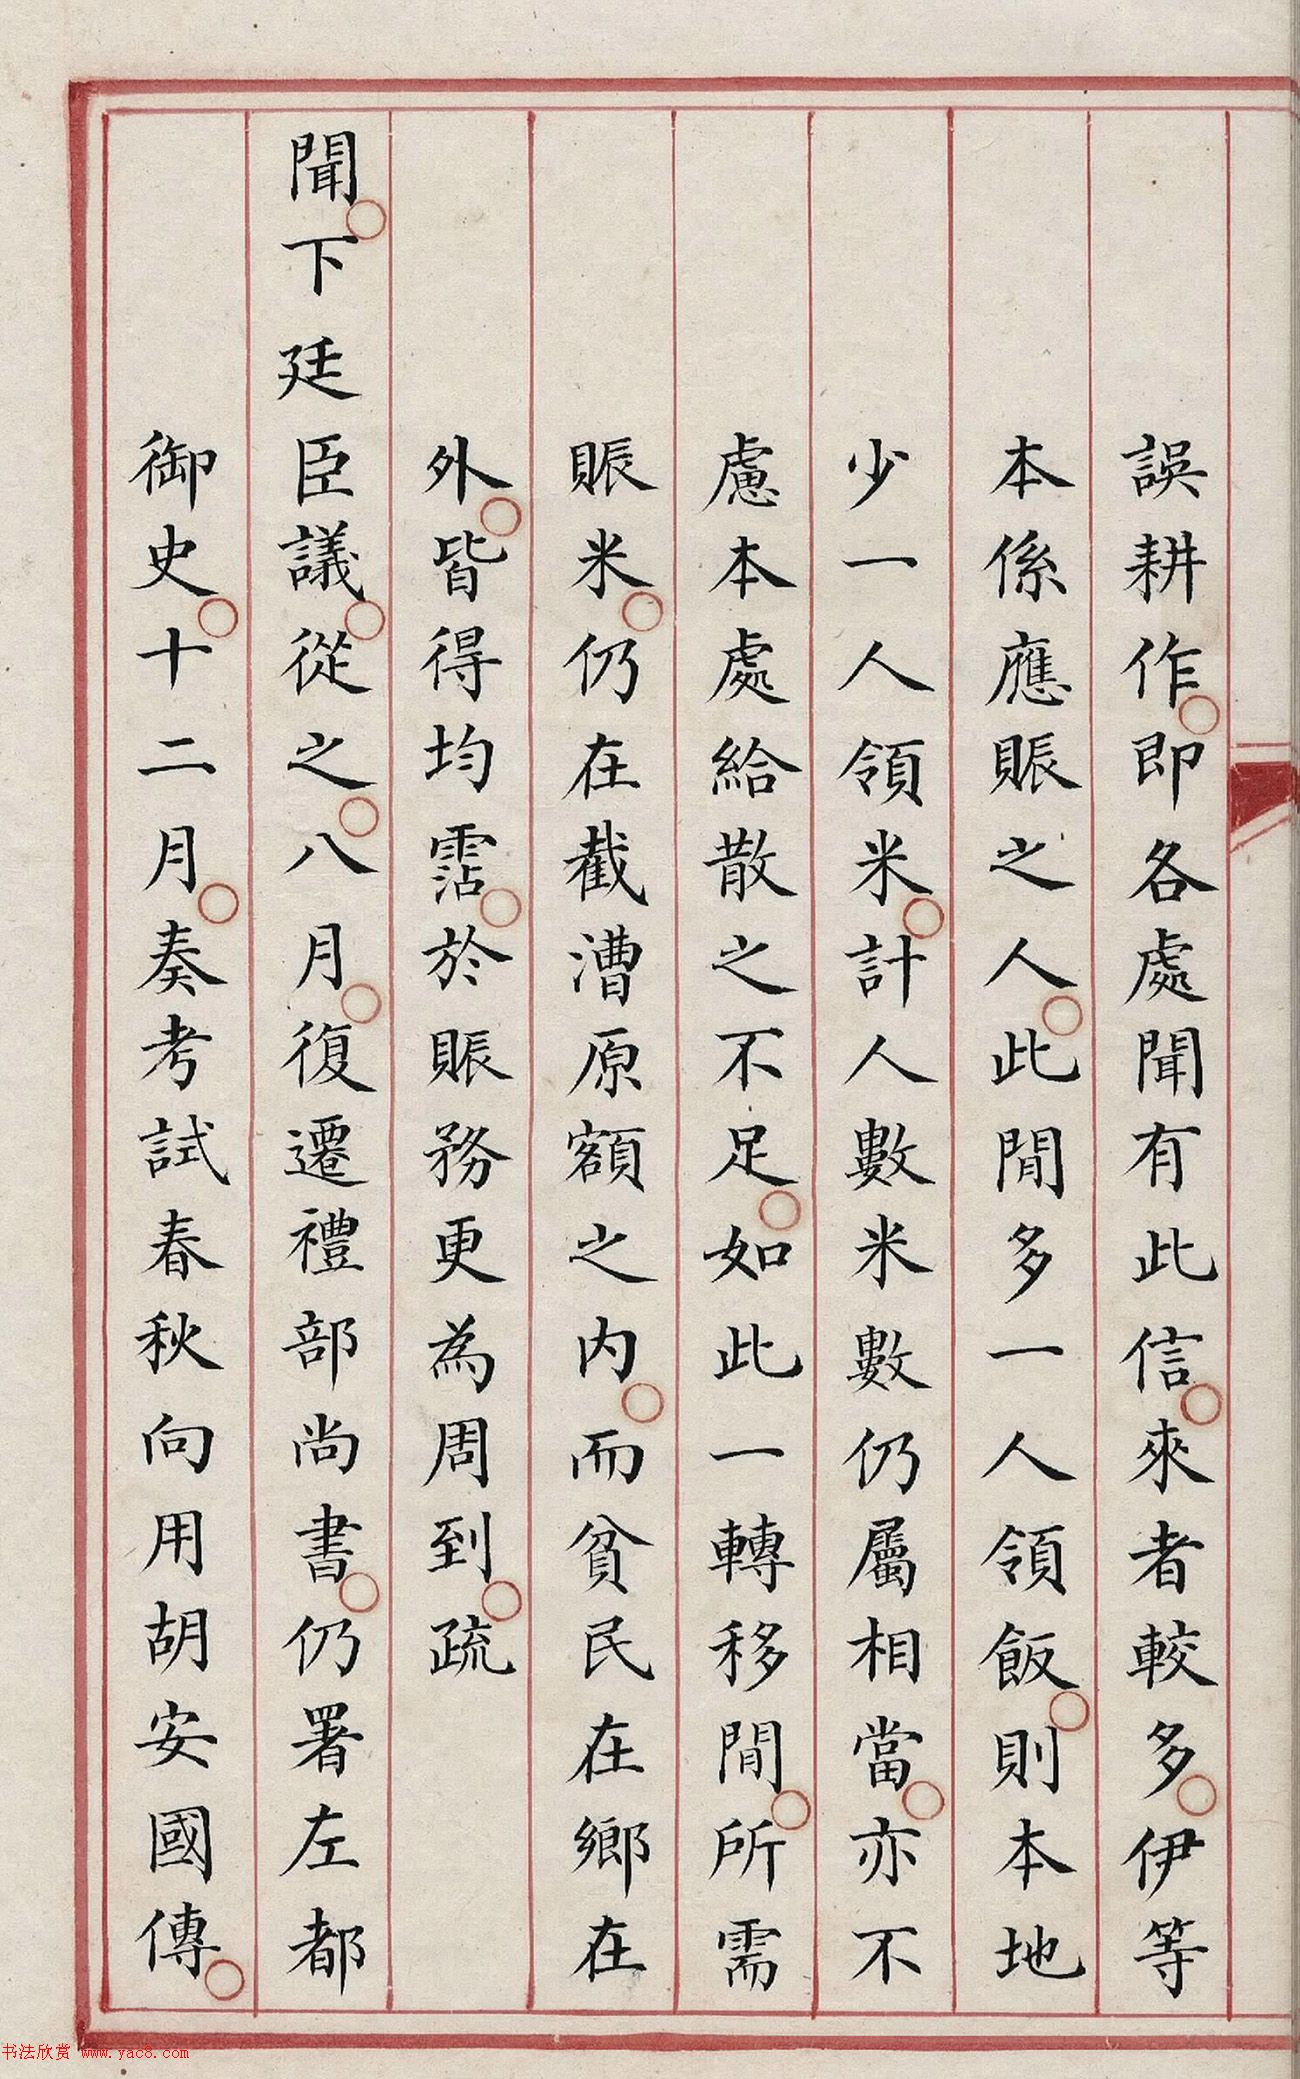 誤耕作即各處聞有此信來者較多伊等
本係應賑之人此閒多一人領飯則本地
少一人領米計人數米數仍屬相當亦不
慮本處給散之不足如此一轉移閒所需
賑米仍在截漕原額之內而貧民在鄉在
外皆得均霑於賑務更為周到疏
聞下廷臣議從之八月復遷禮部尚書仍署左都
御史十二月奏考試春秋向用胡安國傳
书法欣赏 www.yac8.com